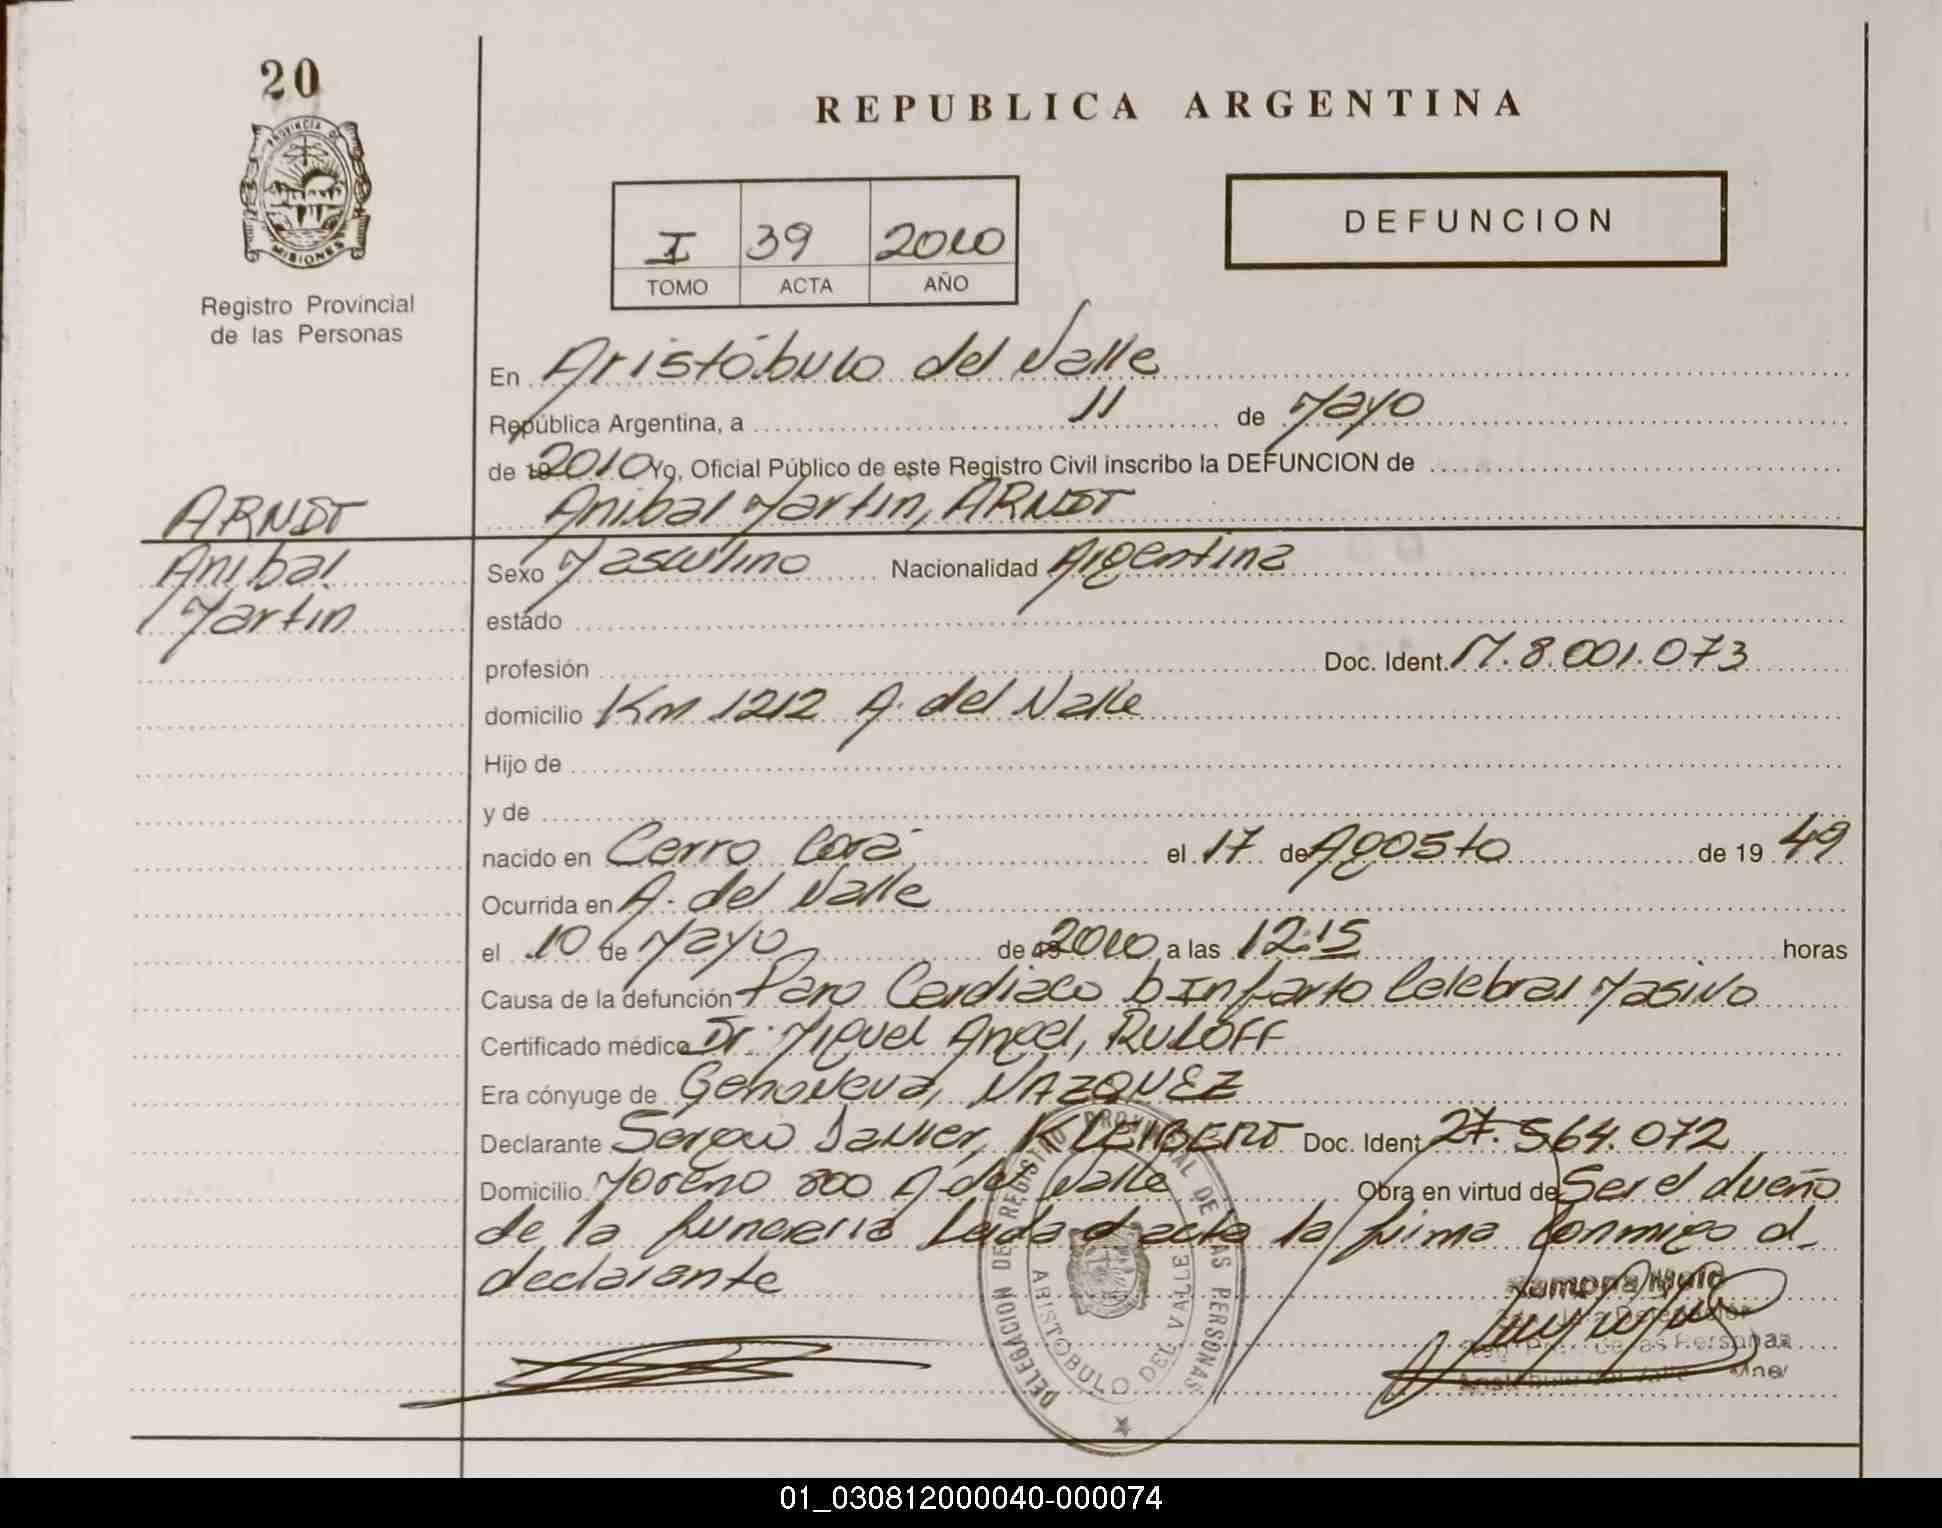 20
PROVINCIA DE
MISIONES
Registro Provincial
de las Personas
REPUBLICA ARGENTINA
I 39 2010
TOMO ACTA AÑO
DEFUNCION
En Aristóbulo del Valle
República Argentina, a 11 de Mayo
de 19 2010 Yo, Oficial Público de este Registro Civil inscribo la DEFUNCION de
ARNDT
Anibal Martin, ARNDT
Anibal
Martin
Sexo Masculino Nacionalidad Argentina
estado
profesión Doc. Ident. M. 8.001.073
domicilio Km 1212 A. del Valle
Hijo de
y de
nacido en Cerro Corá el 17 de Agosto de 19 49
Ocurrida en A. del Valle
el 10 de Mayo de 19 2010 a las 12:15 horas
Causa de la defunción Paro Cardiaco b Infarto Celebral Masivo
Certificado médico Dr. Miguel Angel, RULOFF
Era cónyuge de Genoveva, VAZQUEZ
Declarante Sergio Javier, KLEIBERT Doc. Ident 27.564.072
Domicilio Moreno 800 A del Valle Obra en virtud de Ser el dueño
de la funeraria Leida el acta la firma conmigo el
declarante
DELEGACION DEL REGISTRO PROVINCIAL DE LAS PERSONAS
ARISTOBULO DEL VALLE
Ramona
de las Personas
01_030812000040-000074